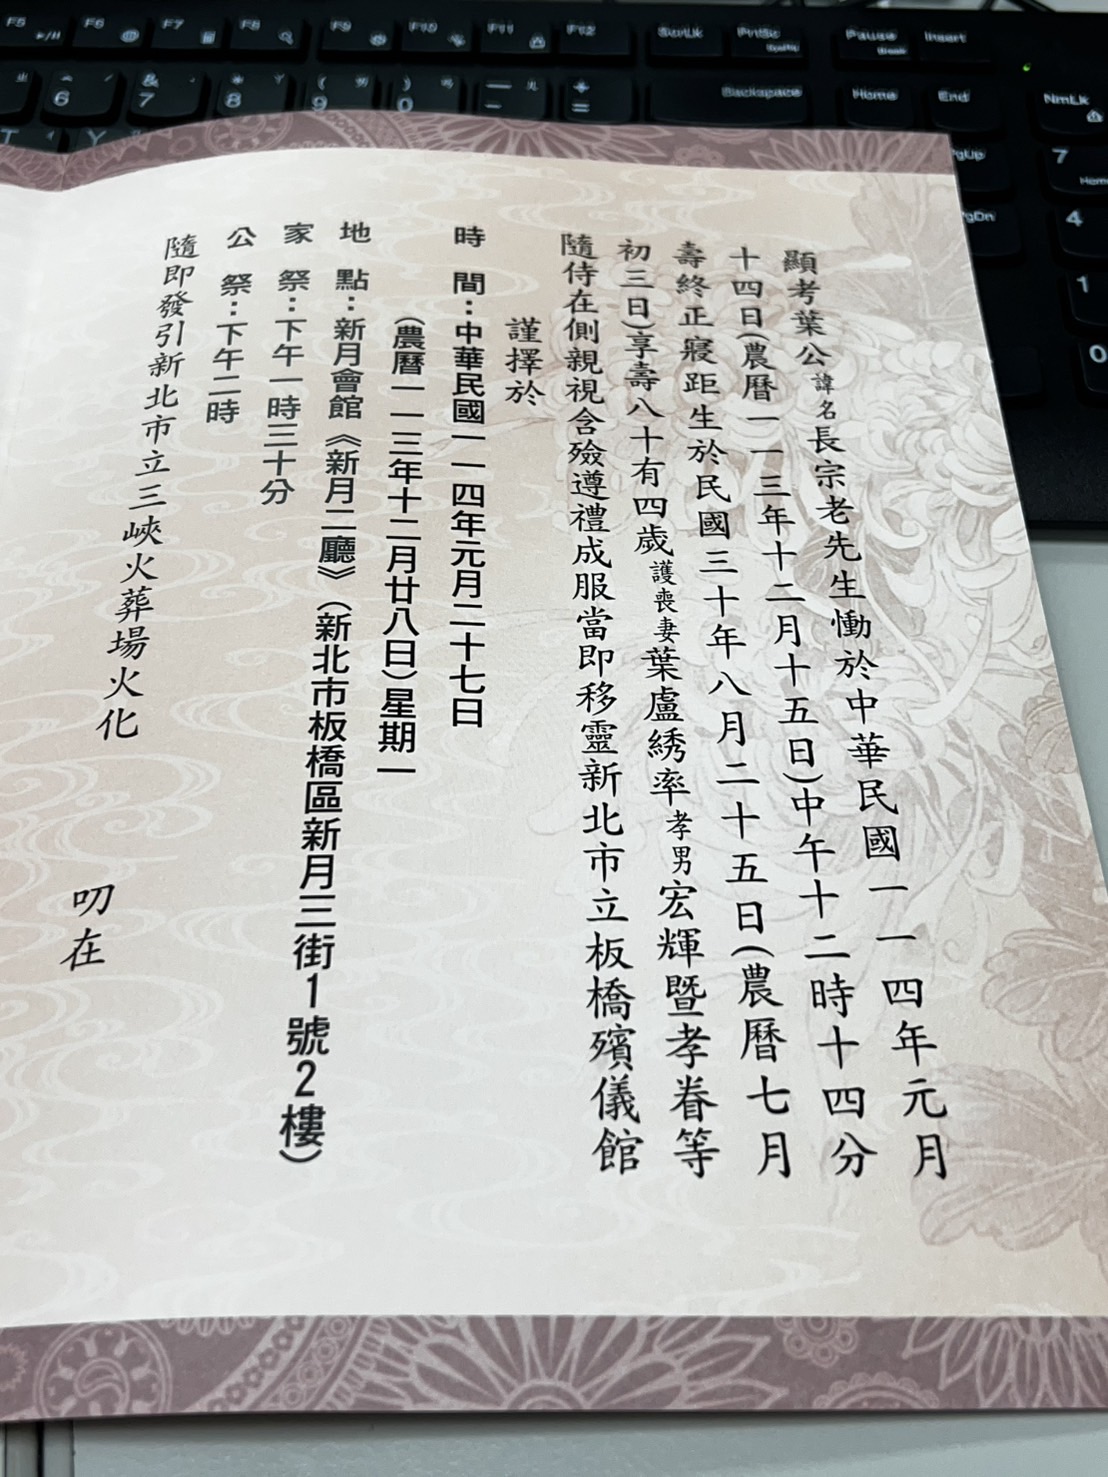 顯考葉公諱名長宗老先生慟於中華民國一一四年元月
十四日(農曆一一三年十二月十五日)中午十二時十四分
壽終正寢距生於民國三十年八月二十五日(農曆七月
初三日)享壽八十有四歲護喪妻葉盧綉率孝男宏輝暨孝眷等
隨侍在側親視含殮遵禮成服當即移靈新北市立板橋殯儀館
謹擇於
時間：中華民國一一四年元月二十七日
(農曆一一三年十二月廿八日)星期一
地點：新月會館《新月二廳》(新北市板橋區新月三街1號2樓)
家祭：下午一時三十分
公祭：下午二時
隨即發引新北市立三峽火葬場火化
叨在
F5
F6
F7
F8
F9
F10
F11
F12
ScrLk
PrtSc
SysRq
Pause
Break
Insert
6
& 7
* 8
( 9
) 0
+ =
Backspace
Home
End
NmLk
T
Y
PgUp
7
Home
PgDn
4
1
0